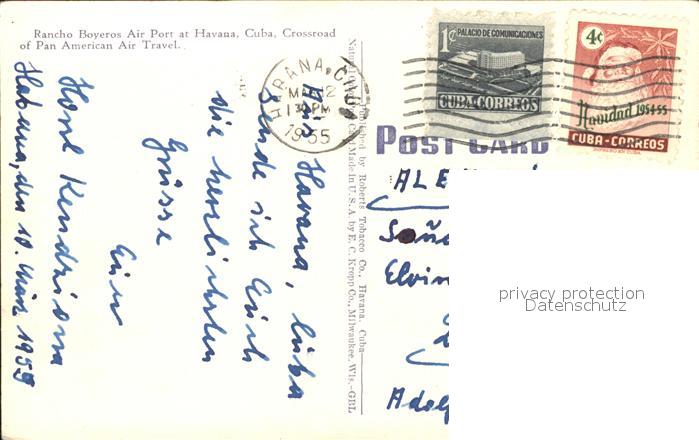 Rancho Boyeros Air Port at Havana, Cuba, Crossroad
of Pan American Air Travel.
Aus Havana, Cuba
sende ich Euch
die herzlichsten
Grüsse
Euer
Horst
Habana, den 10. März 1955
Published by Roberts Tobacco Co., Havana, Cuba
Made in U.S.A. by E. C. Kropp Co., Milwaukee, Wis.-GBL
HABANA, CUBA
12
1 30 PM
1955
1¢ PALACIO DE COMUNICACIONES
CUBA-CORREOS
4¢
Navidad 1954-55
CUBA-CORREOS
POST CARD
ALE
Elvin
Adolf
privacy protection
Datenschutz